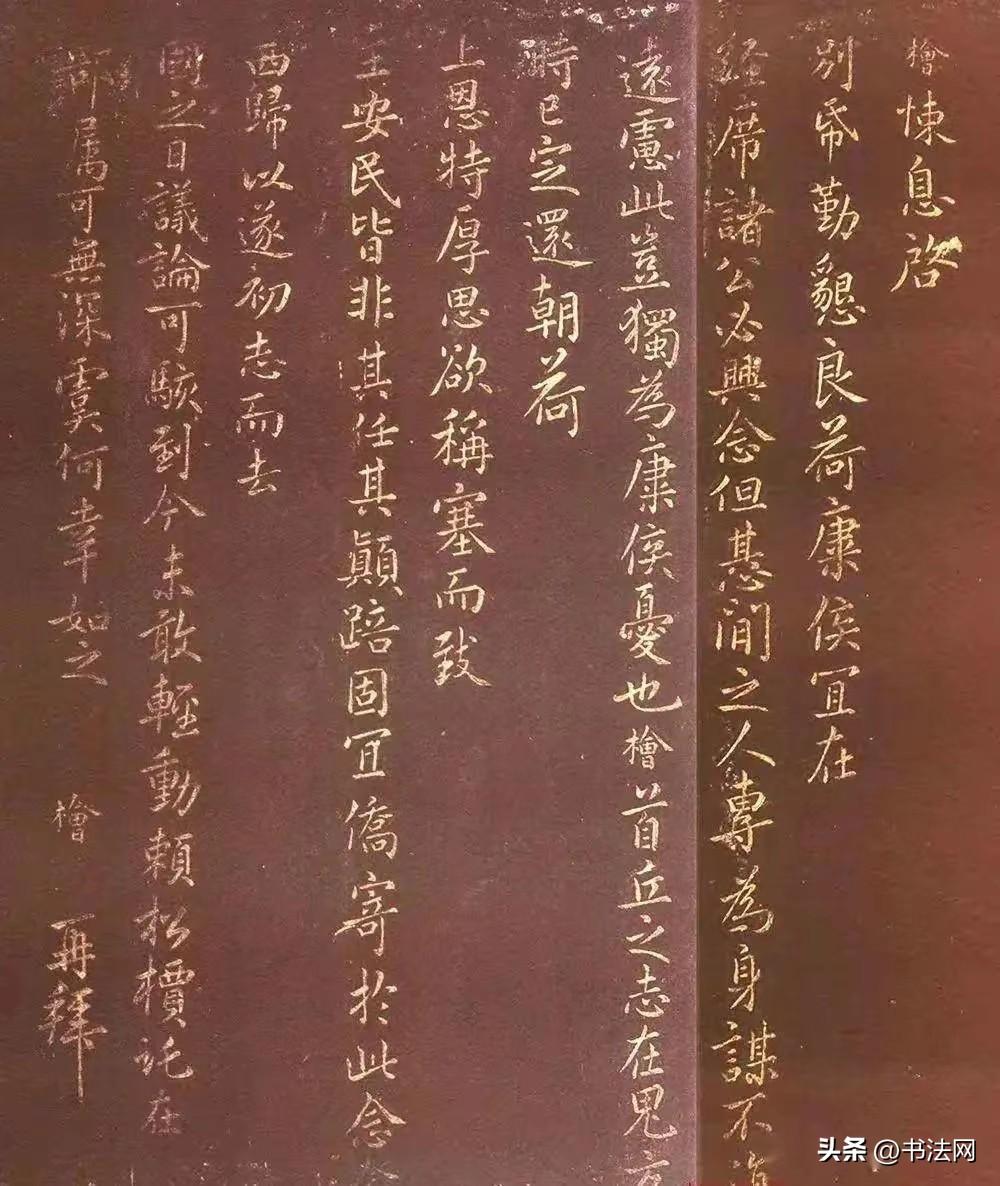 檜悚息啓
別帋勤懇良荷康侯冝在
經席諸公必興念但甚閒之人專為身謀不
遠慮此豈獨為康侯憂也檜首丘之志在
時已定還朝荷
上恩特厚思欲稱塞而致
主安民皆非其任其顛踣固冝僑寄於此念
西歸以遂初志而去
國之日議論可駭到今未敢輕動賴松檟託在
鄰屬可無深虞何幸如之 檜 再拜
头条 @书法网